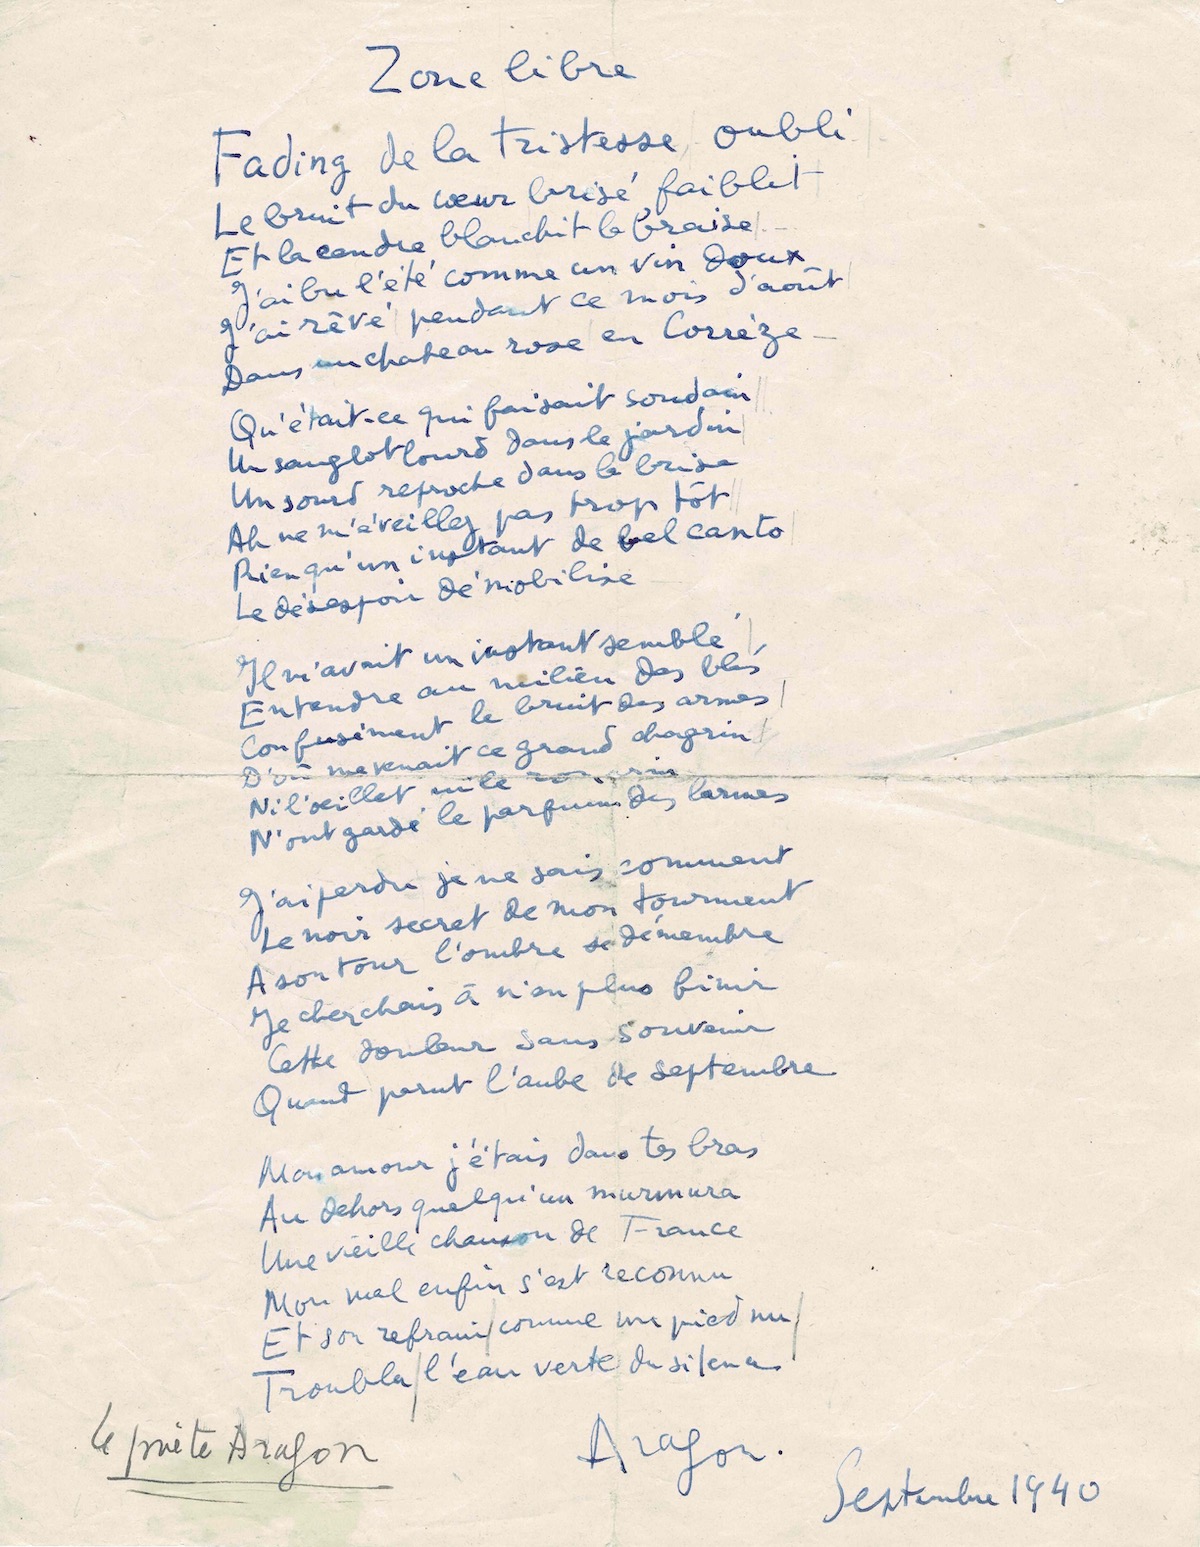 Zone libre
Fading de la tristesse oubli
Le bruit du cœur brisé faiblit
Et la cendre blanchit la braise
J'ai bu l'été comme un vin doux
J'ai rêvé pendant ce mois d'août
Dans un chateau rose en Corrèze
Qu'était-ce qui faisait soudain
Un sanglot lourd dans le jardin
Un sourd reproche dans la brise
Ah ne m'éveillez pas trop tôt
Rien qu'un instant de bel canto
Le désespoir démobilise
Il m'avait un instant semblé
Entendre au milieu des blés
Confusément le bruit des armes
D'où me venait ce grand chagrin
Ni l'œillet ni le romarin
N'ont gardé le parfum des larmes
J'ai perdu je ne sais comment
Le noir secret de mon tourment
A son tour l'ombre se démembre
Je cherchais à n'en plus finir
Cette douleur sans souvenir
Quand parut l'aube de septembre
Mon amour j'étais dans tes bras
Au dehors quelqu'un murmura
Une vieille chanson de France
Mon mal enfin s'est reconnu
Et son refrain comme un pied nu
Troubla l'eau verte du silence
Aragon.
Le poète Aragon
Septembre 1940